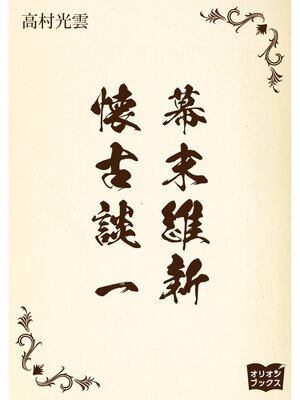 高村光雲
幕末維新
懐古談一
オリオン
ブックス